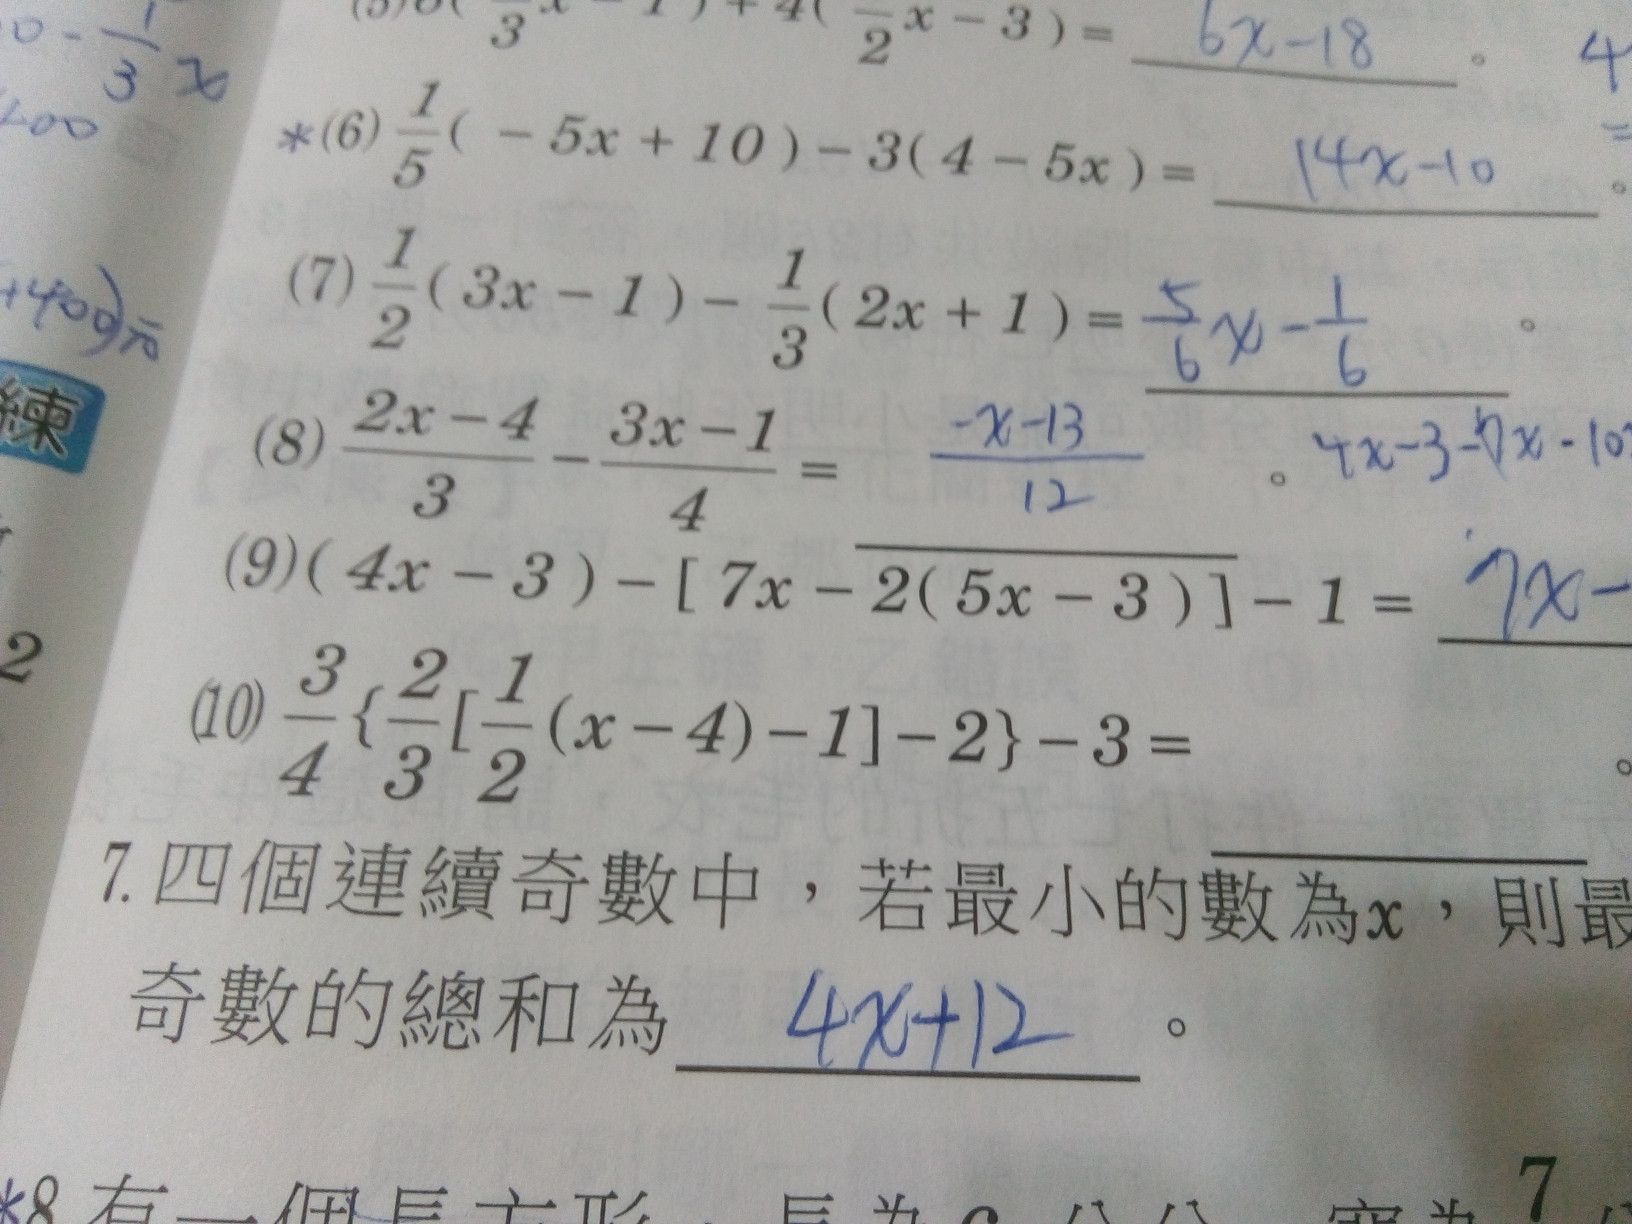 0 - 1/3 x
(5) 6( /3 x - 1 ) + 4( /2 x - 3 ) = 6x-18 。 4
400
*(6) 1/5 ( - 5x + 10 ) - 3( 4 - 5x ) = 14x-10 。
(7) 1/2 ( 3x - 1 ) - 1/3 ( 2x + 1 ) = 5/6 x - 1/6 。
+400)元
練
(8) (2x - 4)/3 - (3x - 1)/4 = (-x-13)/12 。 4x-3-7x-10
(9) ( 4x - 3 ) - [ 7x - 2( 5x - 3 ) ] - 1 = 7x-
2
(10) 3/4 { 2/3 [ 1/2 (x - 4) - 1 ] - 2 } - 3 = 。
7. 四個連續奇數中，若最小的數為x，則最
奇數的總和為 4x+12 。
*8 有一個長方形，長為6 公分 寬為 7